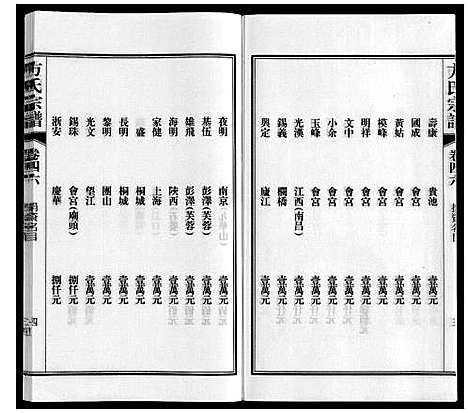 方氏宗譜
卷四六
壽康 貴池 壹萬元
國成 會宮 壹萬元
黃姑 會宮 壹萬元
模峰 會宮 壹萬元
明祥 會宮 壹萬元
文中 會宮 壹萬元
小余 會宮 壹萬元
玉峰 會宮 壹萬元
漢光 江西(南昌) 壹萬元
錫義 欄橋 壹萬元
興定 廬江 壹萬元
夜明 南京 壹萬元
基伍 彭澤(芙蓉) 壹萬元
雄飛 彭澤(芙蓉) 壹萬元
海明 陝西 壹萬元
家健 上海 壹萬元
盛 桐城 壹萬元
長明 桐城 壹萬元
黎明 團山 壹萬元
光文 望江 壹萬元
錫珠 會宮(廟頭) 捌仟元
浙安 慶華 捌仟元
方氏宗譜
卷四六